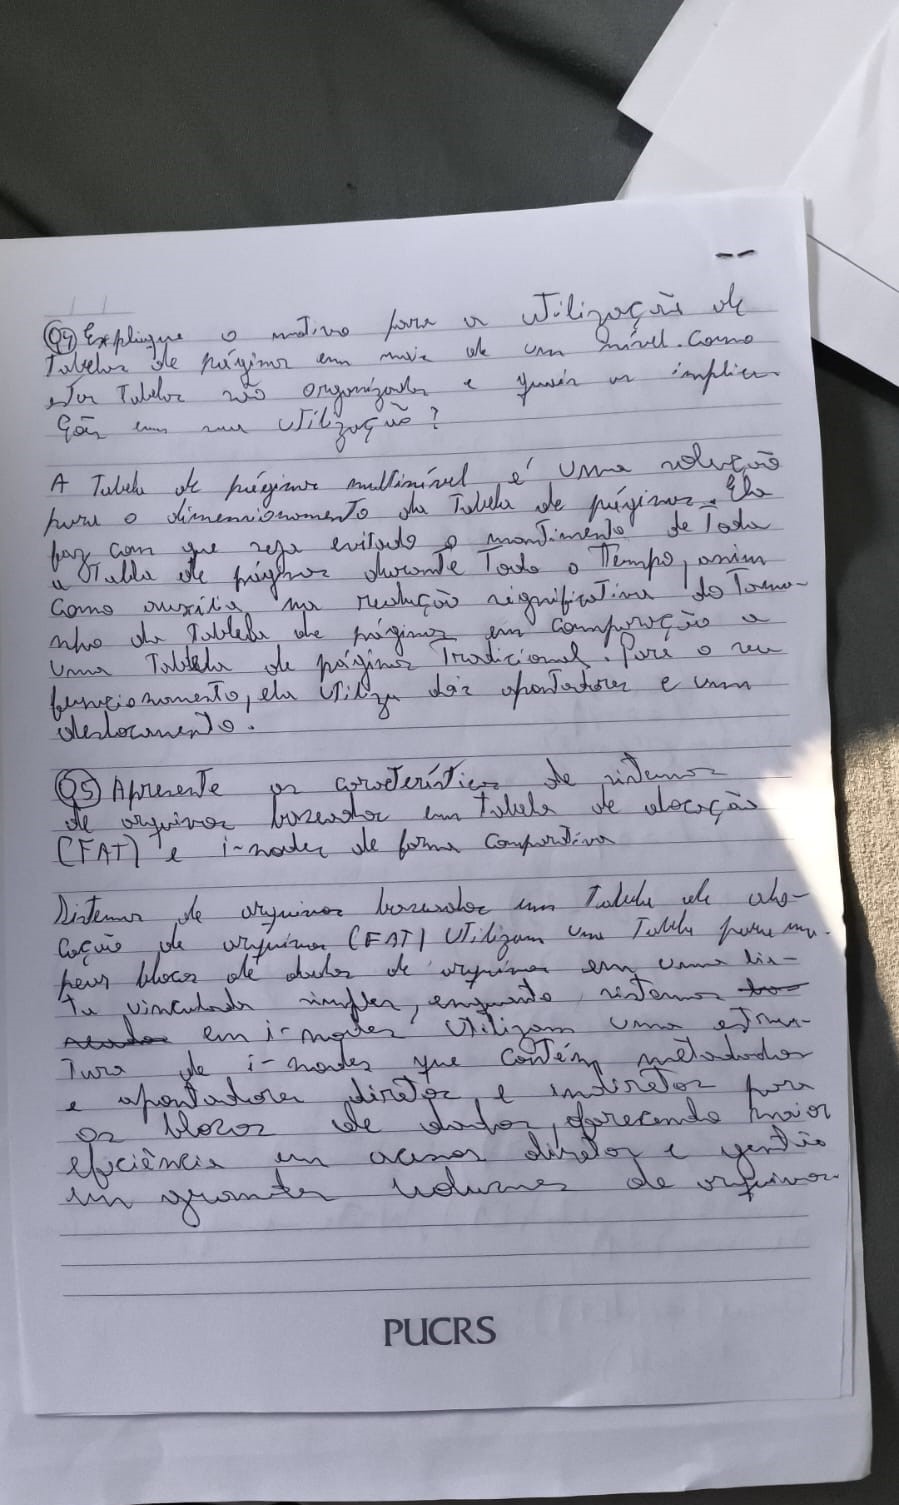 Q4) Explique o motivo para a utilização de
Tabelas de páginas em mais de um nível. Como
estas Tabelas são organizadas e quais as implica-
ções em sua utilização?
A Tabela de páginas multinível é uma solução
para o dimensionamento da Tabela de páginas. Ela
faz com que seja evitado o mantimento de Toda
a Tabla de páginas durante Todo o Tempo, assim
como auxilia na redução significativa do Tama-
nho da Tabela de páginas em comparação a
uma Tabela de páginas Tradicional. Para o seu
funcionamento, ela utiliza dois apontadores e um
deslocamento.
Q5) Apresente as características de sistemas
de arquivos baseados em tabela de alocação
(FAT) e i-nodes de forma comparativa
Sistemas de arquivos baseados em Tabela de alo-
cação de arquivos (FAT) utilizam uma Tabela para ma-
pear blocos de dados de arquivos em uma lis-
ta vinculada simples, enquanto sistemas ba
seados em i-nodes utilizam uma estru-
tura de i-nodes que contém metadados
e apontadores diretos e indiretos para
os blocos de dados, oferecendo maior
eficiência em acesso diretos e gestão
em grandes volumes de arquivos.
PUCRS